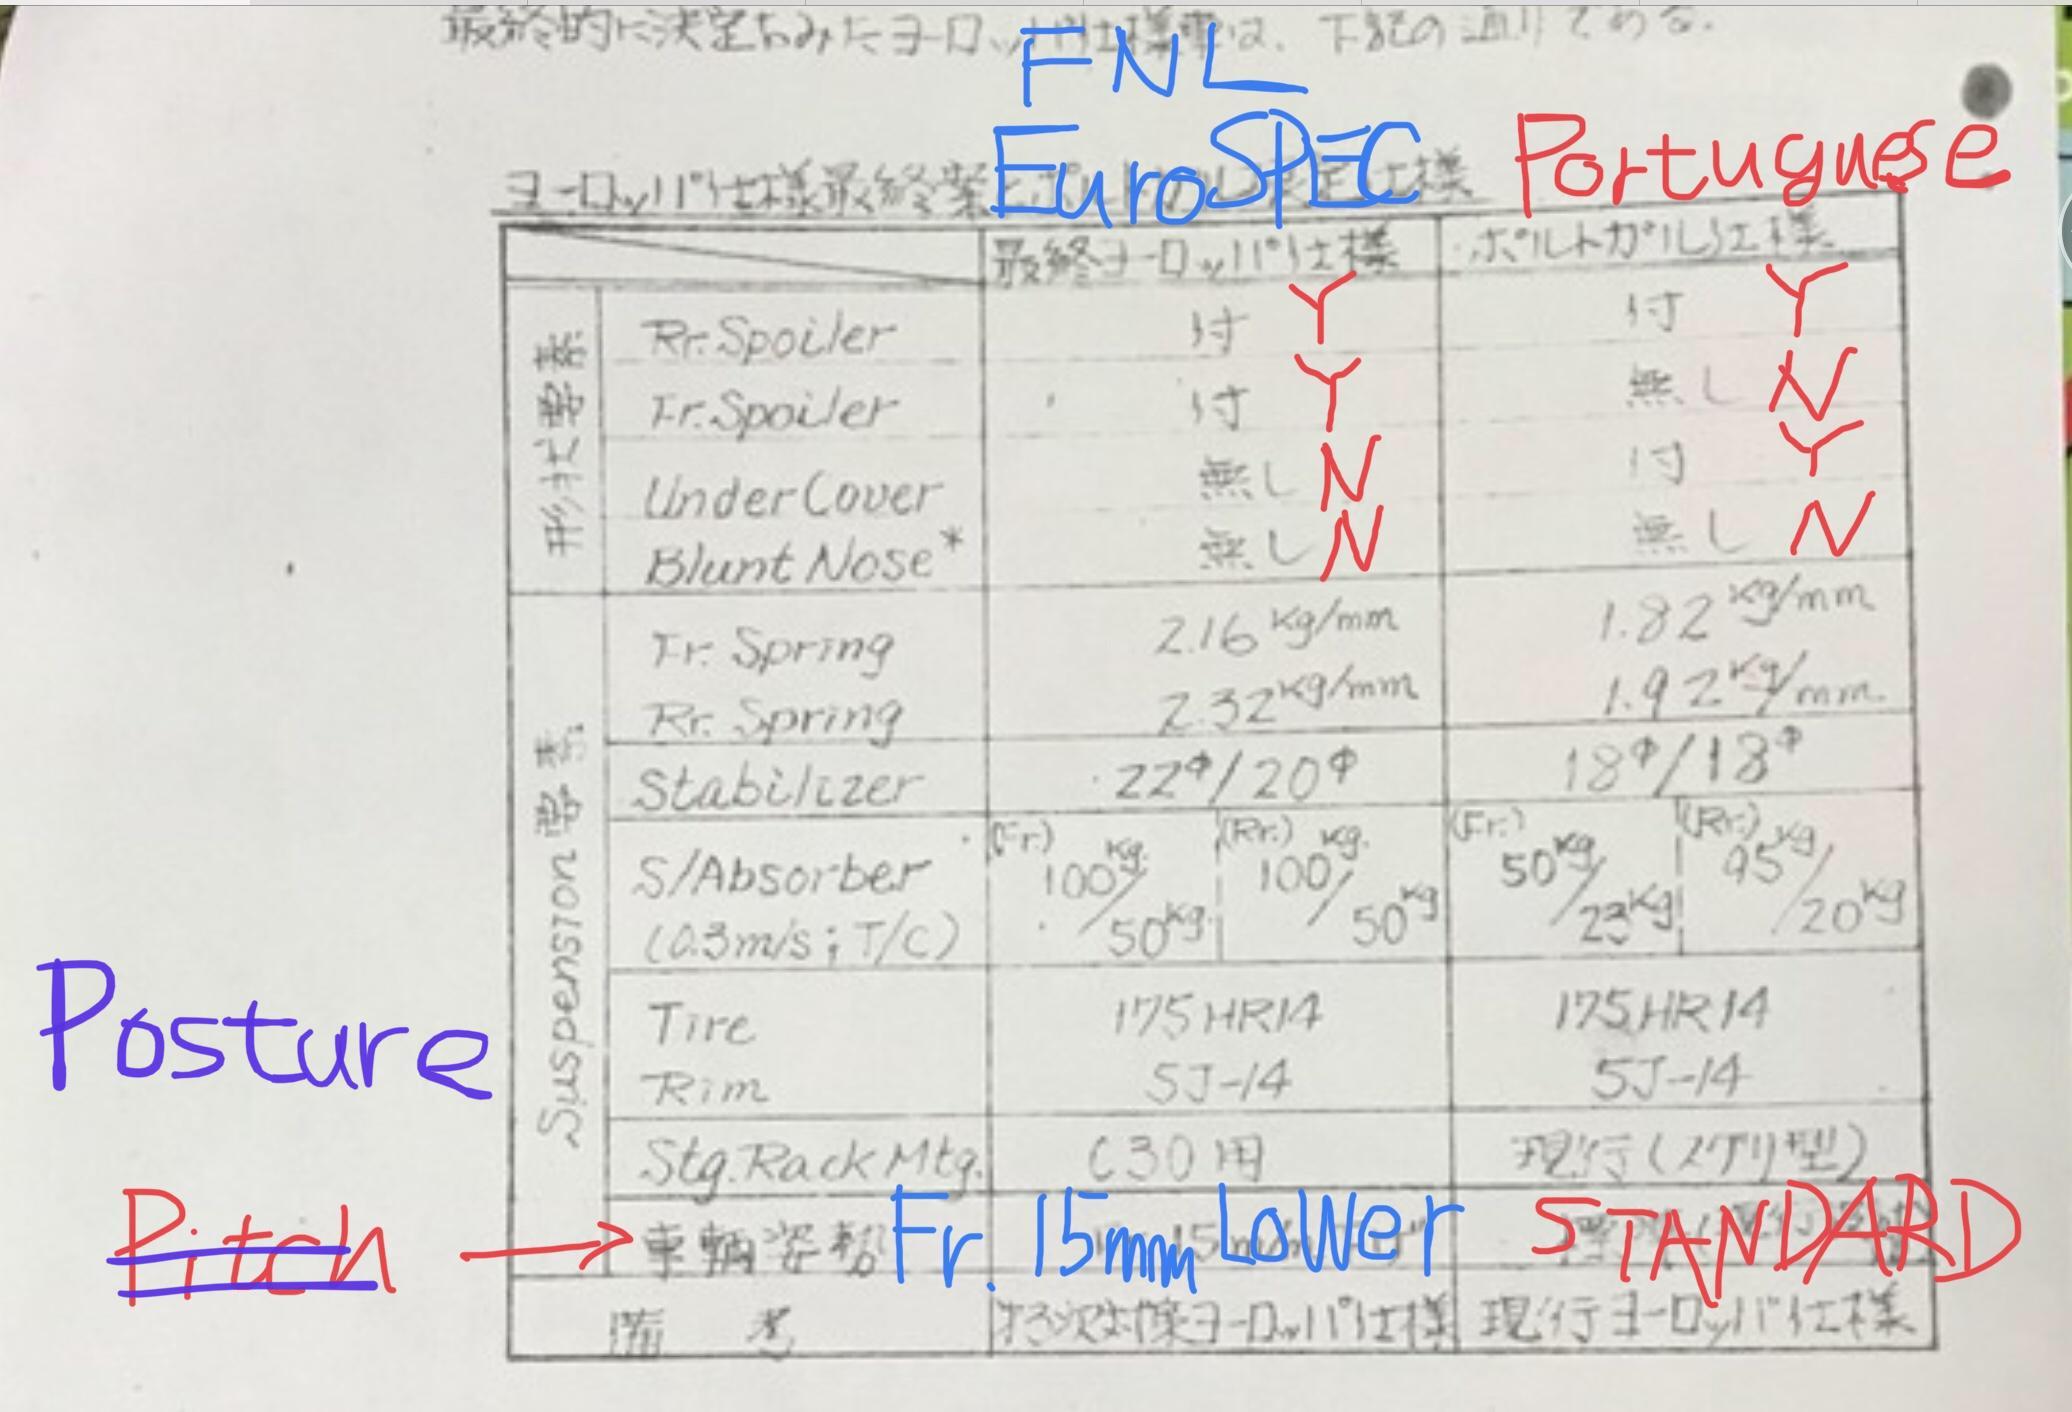 最終的に決定されたヨーロッパ仕様車は、下記の通りである。
FNL
EuroSPEC Portuguese
ヨーロッパ仕様最終案と 仕様
最終ヨーロッパ仕様 ポルトガル仕様
形状要素
Rr. Spoiler 付 Y 付 Y
Fr. Spoiler 付 Y 無し N
Under Cover 無し N 付 Y
Blunt Nose* 無し N 無し N
Suspension要素
Fr. Spring 2.16 Kg/mm 1.82 Kg/mm
Rr. Spring 2.32 Kg/mm 1.92 Kg/mm
Stabilizer 22φ/20φ 18φ/18φ
S/Absorber (Fr.) 100Kg/50Kg (Rr.) 100Kg/50Kg (Fr.) 50Kg/23Kg (Rr.) 95Kg/20Kg
(0.3m/s; T/C)
Tire 175HR14 175HR14
Rim 5J-14 5J-14
Posture
Stg. Rack Mtg. C30用 現行
Pitch → 車輌姿勢 Fr. 15mm Lower STANDARD
備考 ヨーロッパ仕様 現行ヨーロッパ仕様